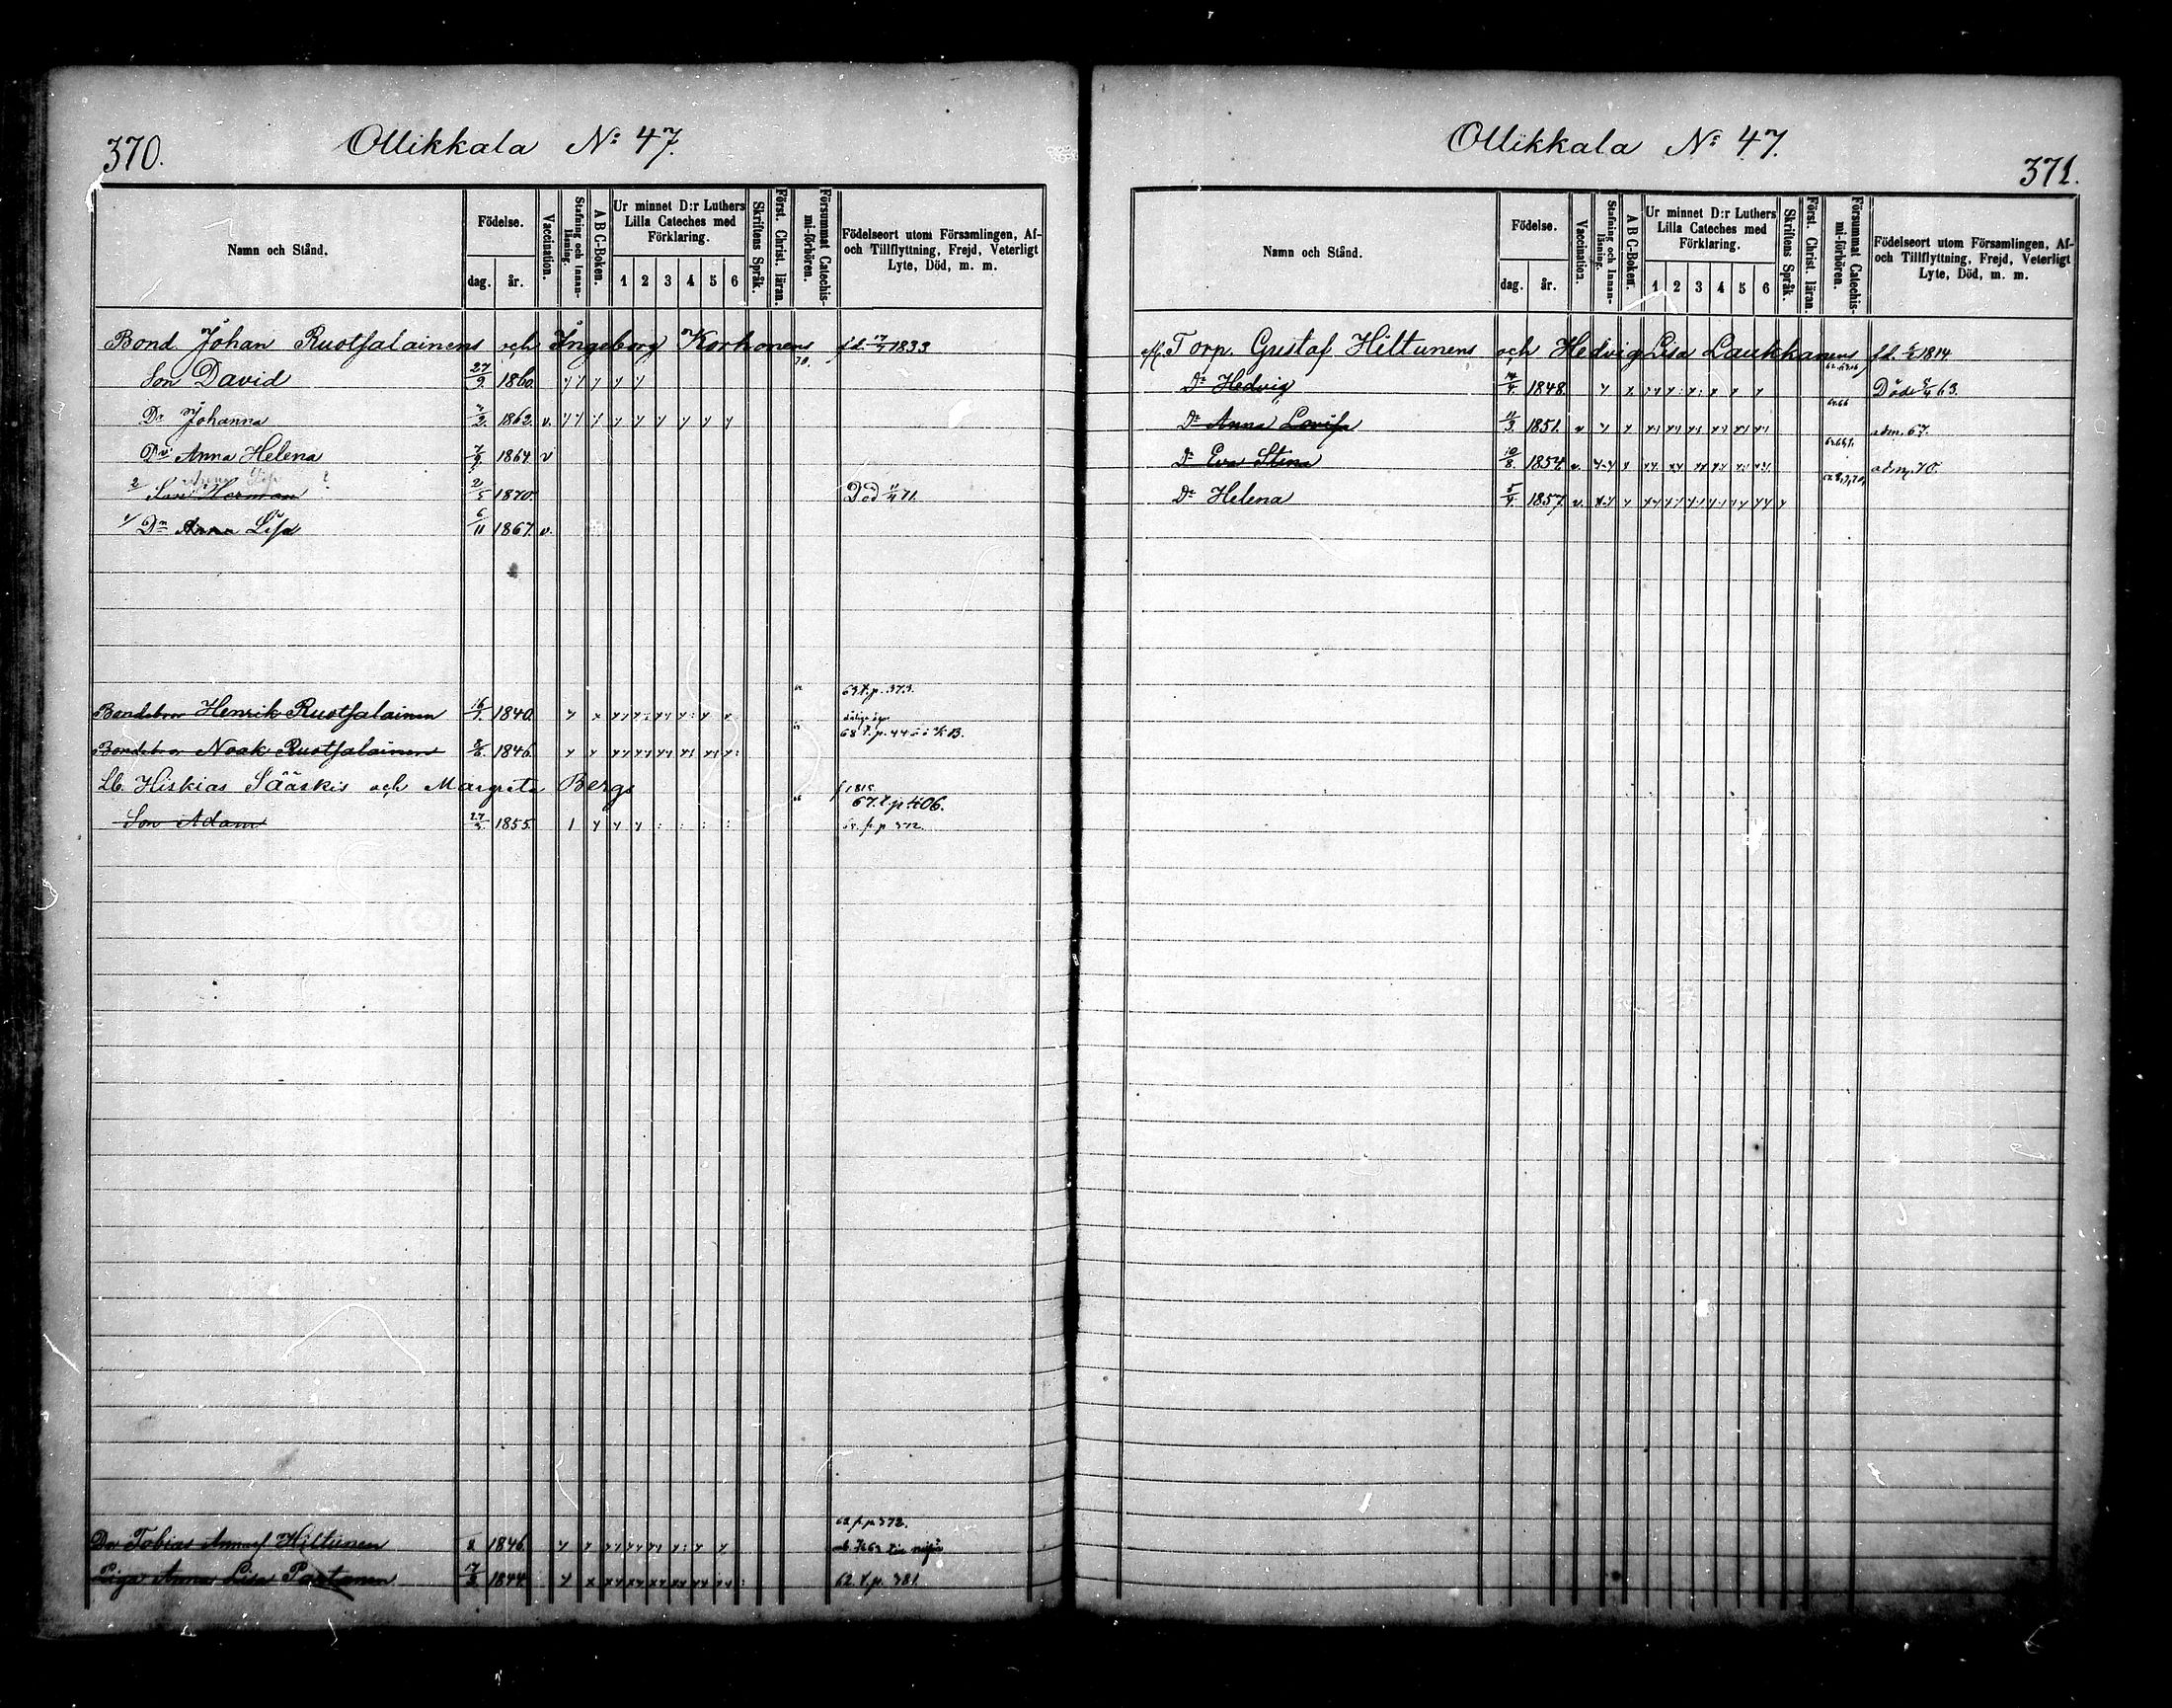 370.
Ollikkala No 47.
Namn och Stånd.
Födelse.
dag. år.
Vaccination.
Stafning och Innan-läsning.
A B C-Boken.
Ur minnet D:r Luthers Lilla Cateches med Förklaring.
1 2 3 4 5 6
Skriftens Språk.
Först. Christ. läran.
Försummat Catechis-mi-förhören.
Födelseort utom Församlingen, Af- och Tillflyttning, Frejd, Veterligt Lyte, Död, m. m.
Bond. Johan Ruotsalainens och Ingeborg Korhonens fd. 17/7 1833
70.
Son David 27/9 1860
Dr Johanna 1862. v.
Dr Anna Helena 7/9 1864 v
2 Son Herman ? 2/5 1870 Död 71.
1/ Dr Anna Lisa 6/11 1867. v.
63 t. p. 373.
Bondebror Henrik Ruotsalainen 16/1 1840.
68 t. p. 44
Bondebror Noak Ruotsalainen 1846.
Lb. Hiskias Sääskis och Margreta Bergs f 1815
67. t. p. 406.
Son Adam 1855. p 372.
62 f. p 372.
Dr Tobias Hiltunen 2 1846.
Piga Anna Lisa Partanen 17/3 1844 62. t. p. 381.
Ollikkala No 47.
371.
Namn och Stånd.
Födelse.
dag. år.
Vaccination.
Stafning och Innan-läsning.
A B C-Boken.
Ur minnet D:r Luthers Lilla Cateches med Förklaring.
1 2 3 4 5 6
Skriftens Språk.
Först. Christ. läran.
Försummat Catechis-mi-förhören.
Födelseort utom Församlingen, Af- och Tillflyttning, Frejd, Veterligt Lyte, Död, m. m.
Torp. Gustaf Hiltunens och Hedvig Lisa Laukkanens fd. 1814
Dr Hedvig 1848. Död 63.
Dr Anna Lovisa 11/3 1851. adm. 67.
Dr Eva Stina 10/8 1854 v. adm. 70.
Dr Helena 5/4 1857. v.